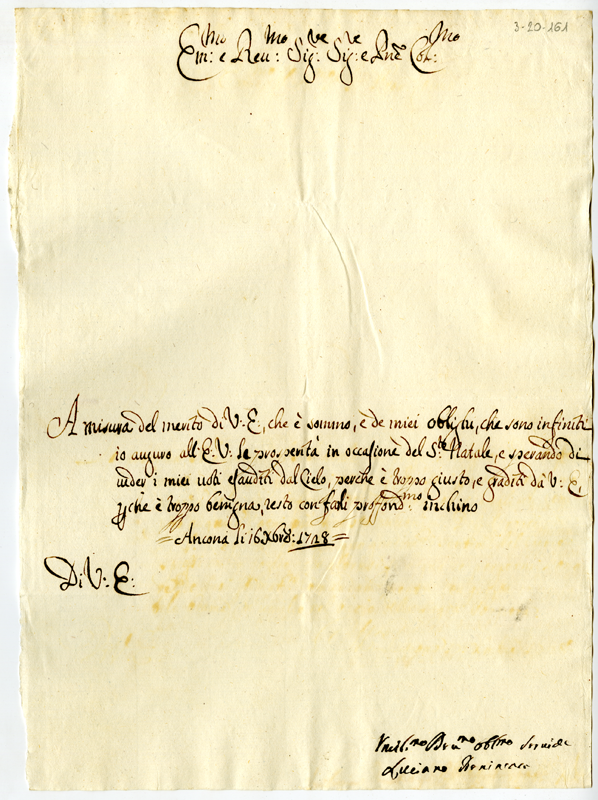 3-20-161
Em:mo e Reu:mo Sig:re Sig:re e Pne Col:mo
A misura del merito di V: E:, che è sommo, e de miei oblighi, che sono infiniti
io auguro all' E: V: le prosperità in occasione del S:to Natale, e sperando di
ueder i miei uoti esauditi dal Cielo, perche è troppo giusto, e graditi da V: E:
che è troppo benigna, resto con farli profond:mo inchino
Ancona li 16 Xbre: 1728
Di V: E:
Umil:mo Deu:mo obl:mo
Luciano